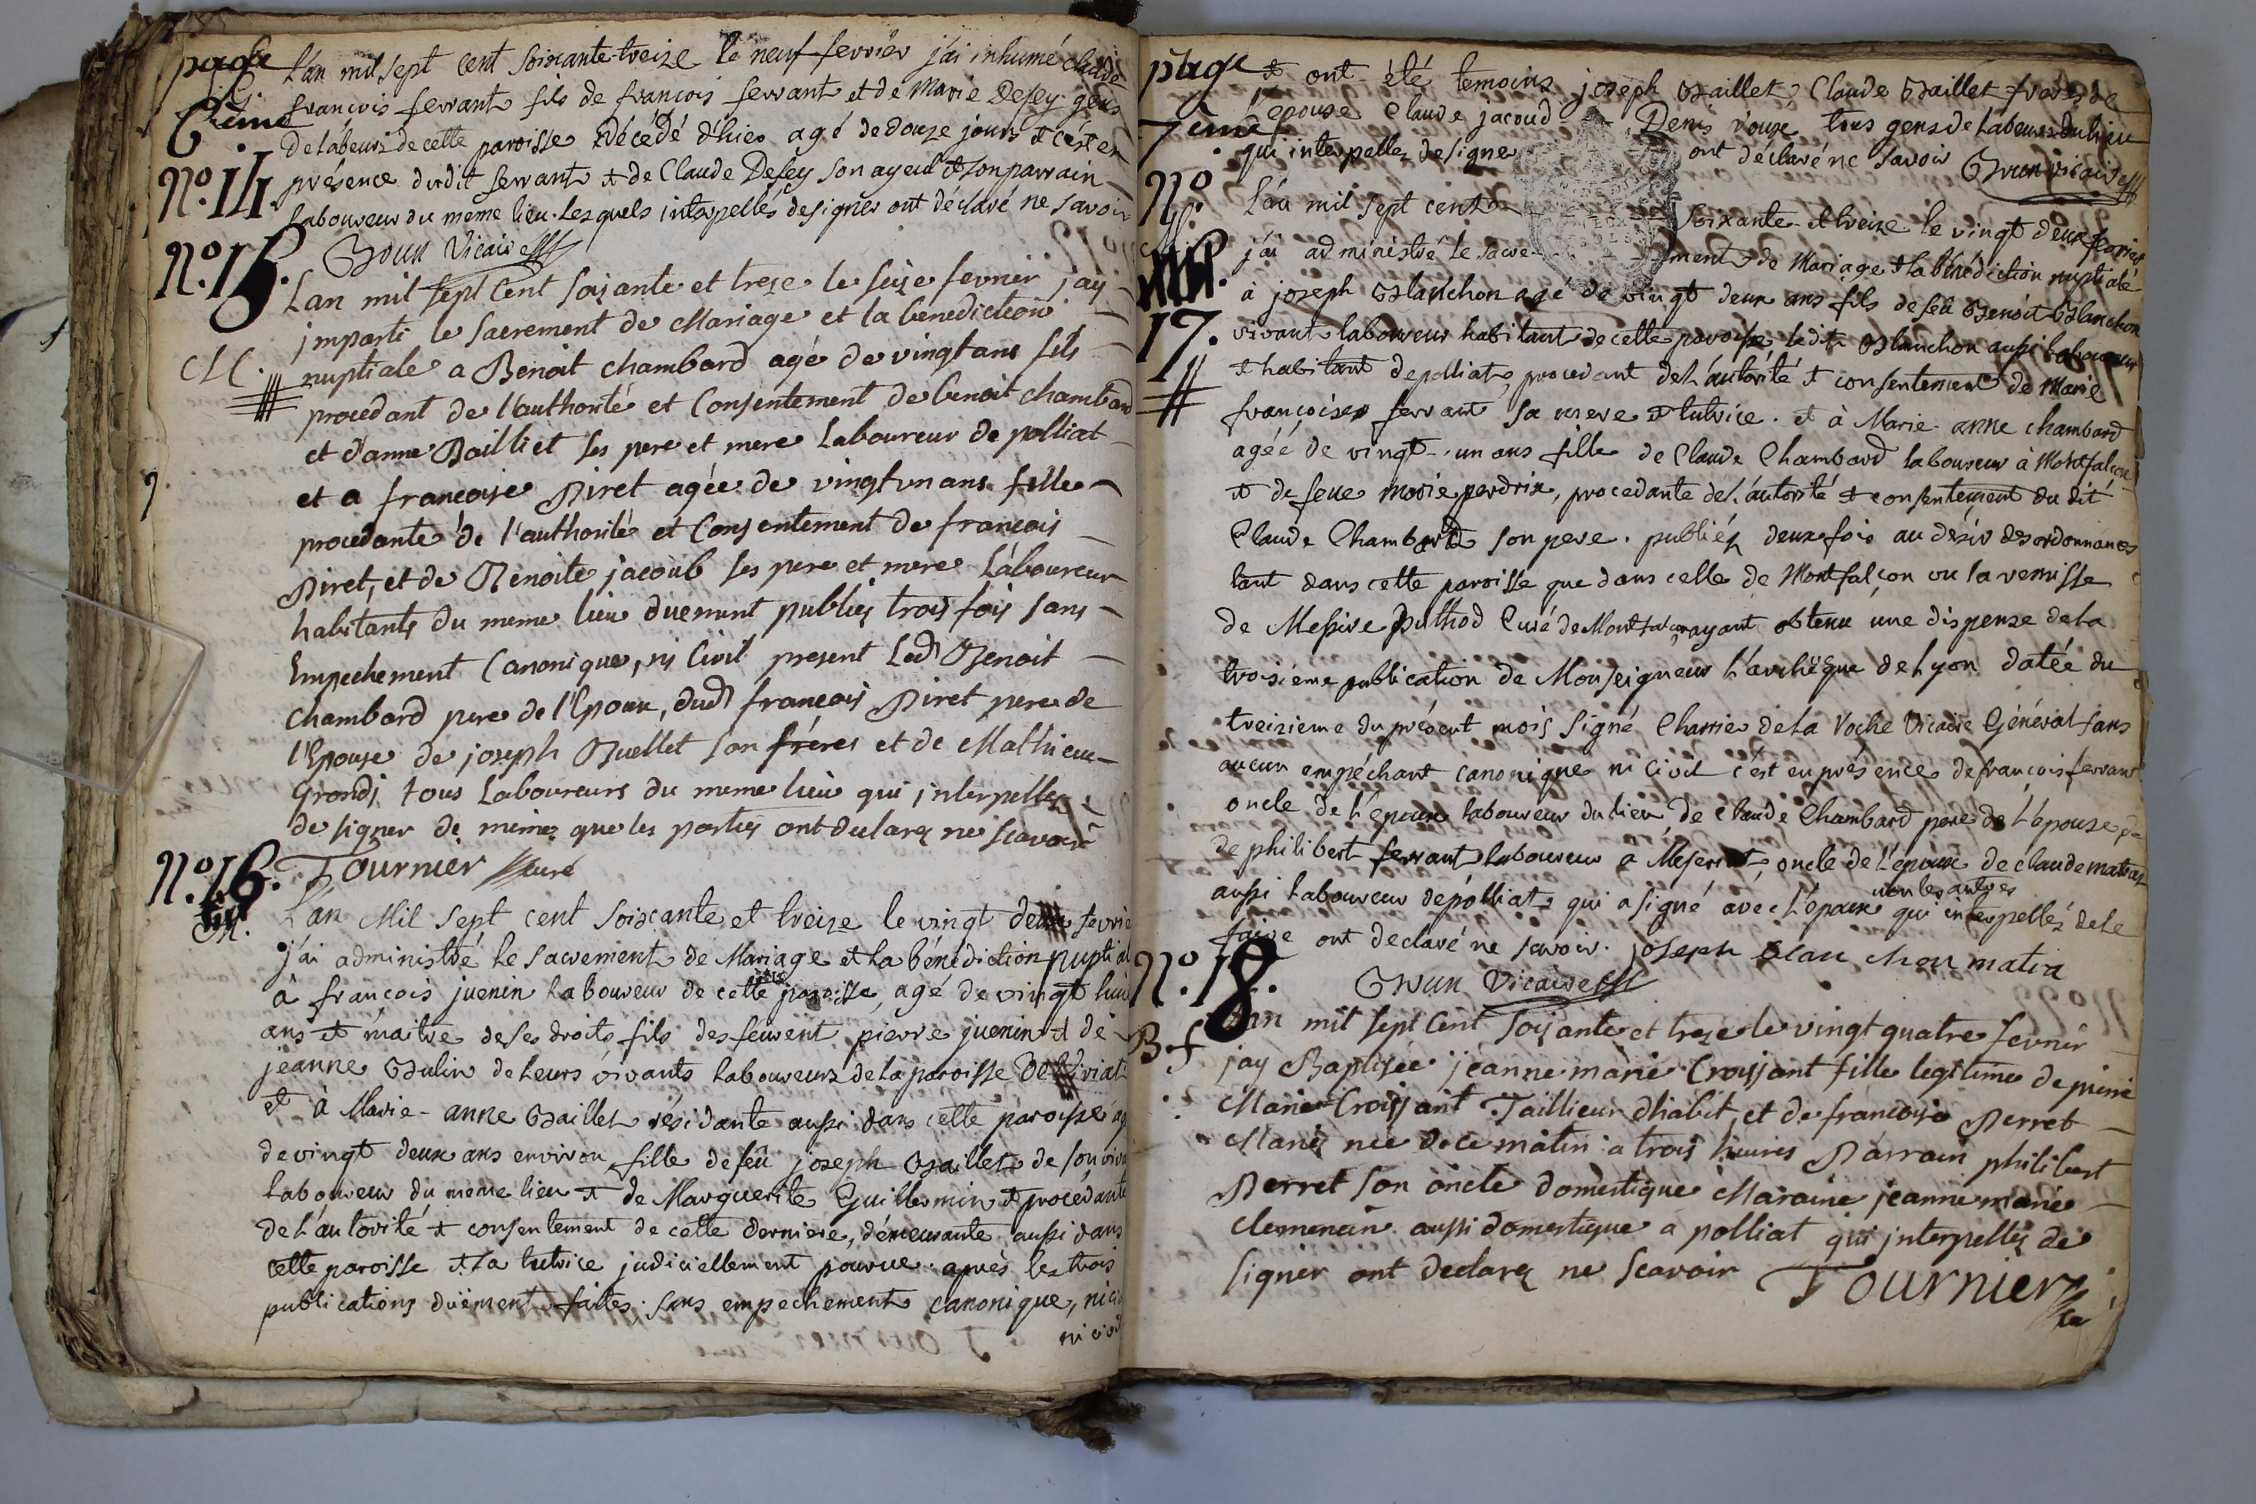 page
6ème
L'an mil sept cent soixante-treize le neuf fevrier j'ai inhumé claude
françois ferrant fils de françois ferrant et de Marie Defey gens
De labeurs de cette paroisse Décédé d'hier agé de douze jours & c'est en
No. 14.
présence dudit ferrant & de Claude Defey son ayeul & son parrain
laboureur du même lieu. Lesquels interpellés de signer ont déclaré ne savoir
No. 15.
Brun Vicaire
L'an mil sept Cent soixante et treze le seize fevrier j'ay
imparti le sacrement de Mariage et la benediction
M.
nuptiale a Benoit chambard agé de vingt ans fils
procedant de l'authorité et Consentement de benoit chambard
et d'anne Bailliet ses pere et mere Laboureur de polliat
et a françoise Piret agée de vingt un ans fille
procedante de l'authorité et Consentement de françois
Piret, et de Benoite jacoub ses pere et mere Laboureur
habitants du meme lieu duement publiés trois fois sans
Empechement Canonique, ni Civil present Led Benoit
chambard pere de l'Epoux, dud françois Piret pere de
l'Epouse de joseph Buellet son frères et de Mathieu
Grondj tous Laboureurs du meme lieu qui interpellez
de signer de meme que les parties ont declarez ne scavoir
Tournier curé
No. 16.
M.
L'an Mil sept cent soixante et treize le vingt deux fevrie
j'ai administré le sacrement de Mariage & la bénédiction nuptial
à françois juenin laboureur de cette paroisse, agé de vingt huit
ans & maitre de ses droits fils des feurent pierre juenin & de
jeanne Bulin de leurs vivants laboureurs de la paroisse De viriat
& à Marie-anne Baillet résidante aussi dans cette paroisse ag
de vingt deux ans environ fille de feû joseph Baillet de son viva
laboureur du meme lieu & de Marguerite Guillermin & procédante
de l'autorité & consentement de cette derniere, démeurante aussi dans
cette paroisse & sa tutrice judiciellement pourvue. après les trois
publications duëment faites. sans empechement canonique, ni ci
ni civil
page
7ème
& ont été temoins joseph Baillet, Claude Baillet freres de
l'épouse Claude jacoud Denis tous gens de labeurs du lieu
qui interpellez de signer ont déclaré ne savoir Brun vicaire
No.
17.
L'an mil sept cent soixante & treize le vingt deux fevrier
j'ai administré le sacrement de Mariage & la bénédiction nuptiale
à joseph Blanchon agé de vingt deux ans fils de feû Benoit Blanchon
vivant laboureur habitant de cette paroisse ledit Blanchon aussi laboureur
& habitant de polliat, procedant de l'autorité & consentement de Marie
françoise ferrant sa mere & tutrice. & à Marie-anne chambard
agéé de vingt-un ans fille de Claude Chambard laboureur à Montfalcon
& de feue Marie perdrix, procedante de l'autorité & consentement du dit
Claude Chambard son pere. publiéz deux fois au désir des ordonnances
tant dans cette paroisse que dans celle de Montfalçon vu la remisse
de Messire Pulliod Curé de Montfalcon ayant obtenu une dispense de la
troisième publication de Monseigneur l'archëvêque de Lyon datée du
treizieme du présent mois signé Charrier de la Roche Vicaire Général sans
aucun empéchant canonique ni civil c'est en présence de françois ferrant
oncle de l'époux laboureur du lieu, de Claude Chambard pere de l'épouse
de philibert ferrant laboureur a Meserriat, oncle de l'époux de claude matrat
aussi laboureur de polliat qui a signé avec l'époux non les autres qui interpellés de le
faire ont declaré ne savoir. joseph blanchon matra
No. 18.
Brun Vicaire
B. f.
L'an mil sept Cent soixante et treze le vingt quatre fevrier
jay Baptisée jeanne marie Croissant fille legitime de pierre
Marie Croissant Taillieur d'habit, et de françoise Perret
Mariés née de ce matin a trois heures Parrain philibert
Perret son oncle domestique Maraine jeanne marie
clemencin aussi domestique a polliat qui interpellés de
signer ont declarez ne scavoir Tournier